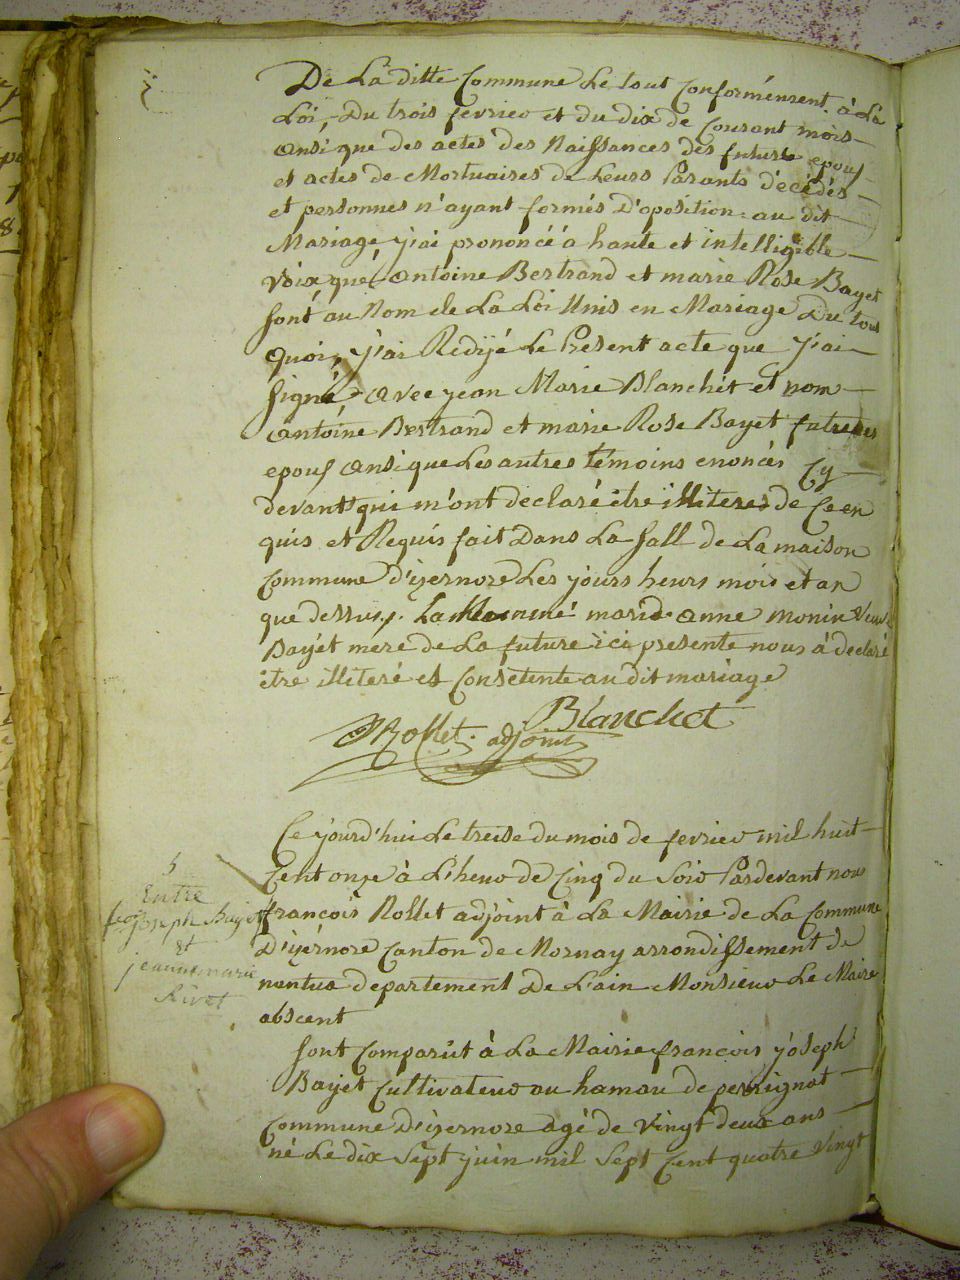 De La ditte Commune Le tout Conformément à La
Loi, Du trois fevrier et du dix de Courant mois
ansi que des actes des Naissances des futurs epouf
et actes de Mortuaires de Leurs Parants décédés
et personnes n'ayant formés D'oposition au dit
Mariage j'ai prononcé à haute et intelligible
voix que, antoine Bertrand et marie Rose Bayet
sont au Nom de La Loi Unis en Mariage Du tout
quoi, j'ai Redijé Le Présent acte que j'ai
signé avec jean Marie Blanchet et nom
antoine Bertrand et marie Rose Bayet futures
epouf ansi que Les autres témoins enoncés Cy
devant qui m'ont declaré être illiteres de Ce en
quis et Requis fait Dans La Sall de La maison
Commune D'izernore Les jours heurs mois et an
que dessus. La marie anne monin veuve
Bayét mere de La future ici presente nous à declaré
être illiteré et Consetente au dit mariage
Blanchet
Rollet adjoint
Ce jourd'hui Le treise du mois de fevrier mil huit
Cent onze à L'heur de Cinq du Soir Pardevant nous
françois Rollet adjoint à La Mairie de La Commune
D'izérnore Canton de Mornay arrondissement de
nantua departement De L'ain Monsieur Le Maire
abscent
5
Entre
françois joseph Bayet
et
jeanne marie
Rivet
Sont Comparût à La Mairie françois joseph
Bayet Cultivateur au hamau de perignat
Commune D'izernore agé de vingt deux ans
né Le dix Sept juin mil Sept Cent quatre Vingt